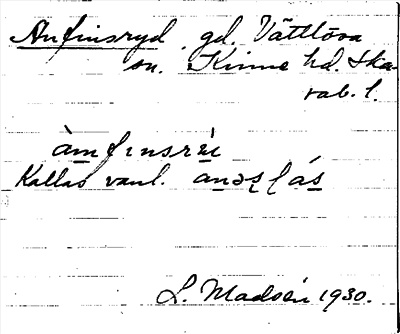 Anfinsryd gd. Vättlösa
sn. Kinne hd. Ska-
rab. l.
Kallas vanl.
L. Madsén 1930.